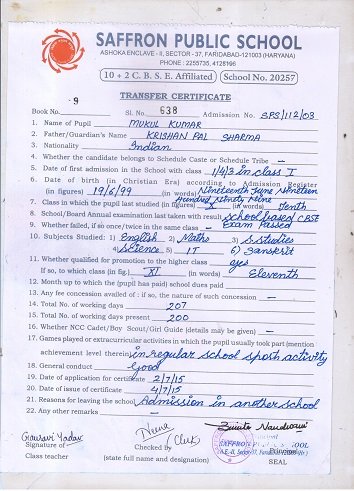 SAFFRON PUBLIC SCHOOL
ASHOKA ENCLAVE - II, SECTOR - 37, FARIDABAD-121003 (HARYANA)
PHONE : 2255735, 4128196
10 + 2 C. B. S. E. Affiliated School No. 20257
TRANSFER CERTIFICATE
Book No. 9 Sl. No. 638 Admission No. SPS/112/03
1. Name of Pupil MUKUL KUMAR
2. Father/Guardian's Name KRISHAN PAL SHARMA
3. Nationality Indian
4. Whether the candidate belongs to Schedule Caste or Schedule Tribe –
5. Date of first admission in the School with class 1/4/3 in class I
6. Date of birth (in Christian Era) according to Admission Register
(in figures) 19/6/99 (in words) Nineteenth June Nineteen
Hundred Ninety Nine
7. Class in which the pupil last studied (in figures) X (in words) Tenth
8. School/Board Annual examination last taken with result School based CBSE
Exam Passed
9. Whether failed, if so once/twice in the same class –
10. Subjects Studied: 1) English 2) Maths 3) S.studies
4) Science 5) IT 6) Sanskrit
11. Whether qualified for promotion to the higher class yes
If so, to which class (in fig.) XI (in words) Eleventh
12. Month up to which the (pupil has paid) school dues paid
13. Any fee concession availed of : if so, the nature of such concession –
14. Total No. of working days 207
15. Total No. of working days present 200
16. Whether NCC Cadet/Boy Scout/Girl Guide (details may be given) –
17. Games played or extracurricular activities in which the pupil usually took part (mention
achievement level therein) in regular school sports activity
18. General conduct Good
19. Date of application for certificate 2/7/15
20. Date of issue of certificate 4/7/15
21. Reasons for leaving the school Admission in another school
22. Any other remarks –
Gauravi Yadav
Signature of
Class teacher
Checked by
/Clerk
(state full name and designation)
Principal
SEAL